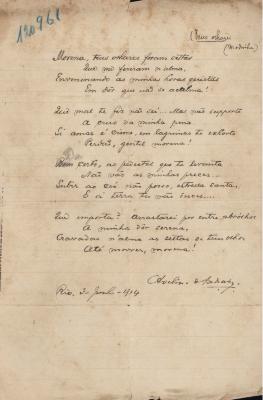 120961
Teus olhares
(Modinha)
Morena, teus olhares foram settas
Que me feriram n'alma,
Envenenando as minhas horas quietas
Em dôr que não se acalma!
Que mal te fiz não sei... Mas não supporto
A cruz da minha pena
Si amar é crime, em lagrimas te exhorto
Perdão, gentil morena!
Bem certo, as preces que te levanta
Não vão as minhas preces...
Subir ao céu não posso, estrella santa,
E á terra tu não desces...
Que importa? Arrastarei por entre abrolhos
A minha dôr serena,
Cravadas n'alma as settas de teus olhos
Até morrer, morena!
Rio, 1914